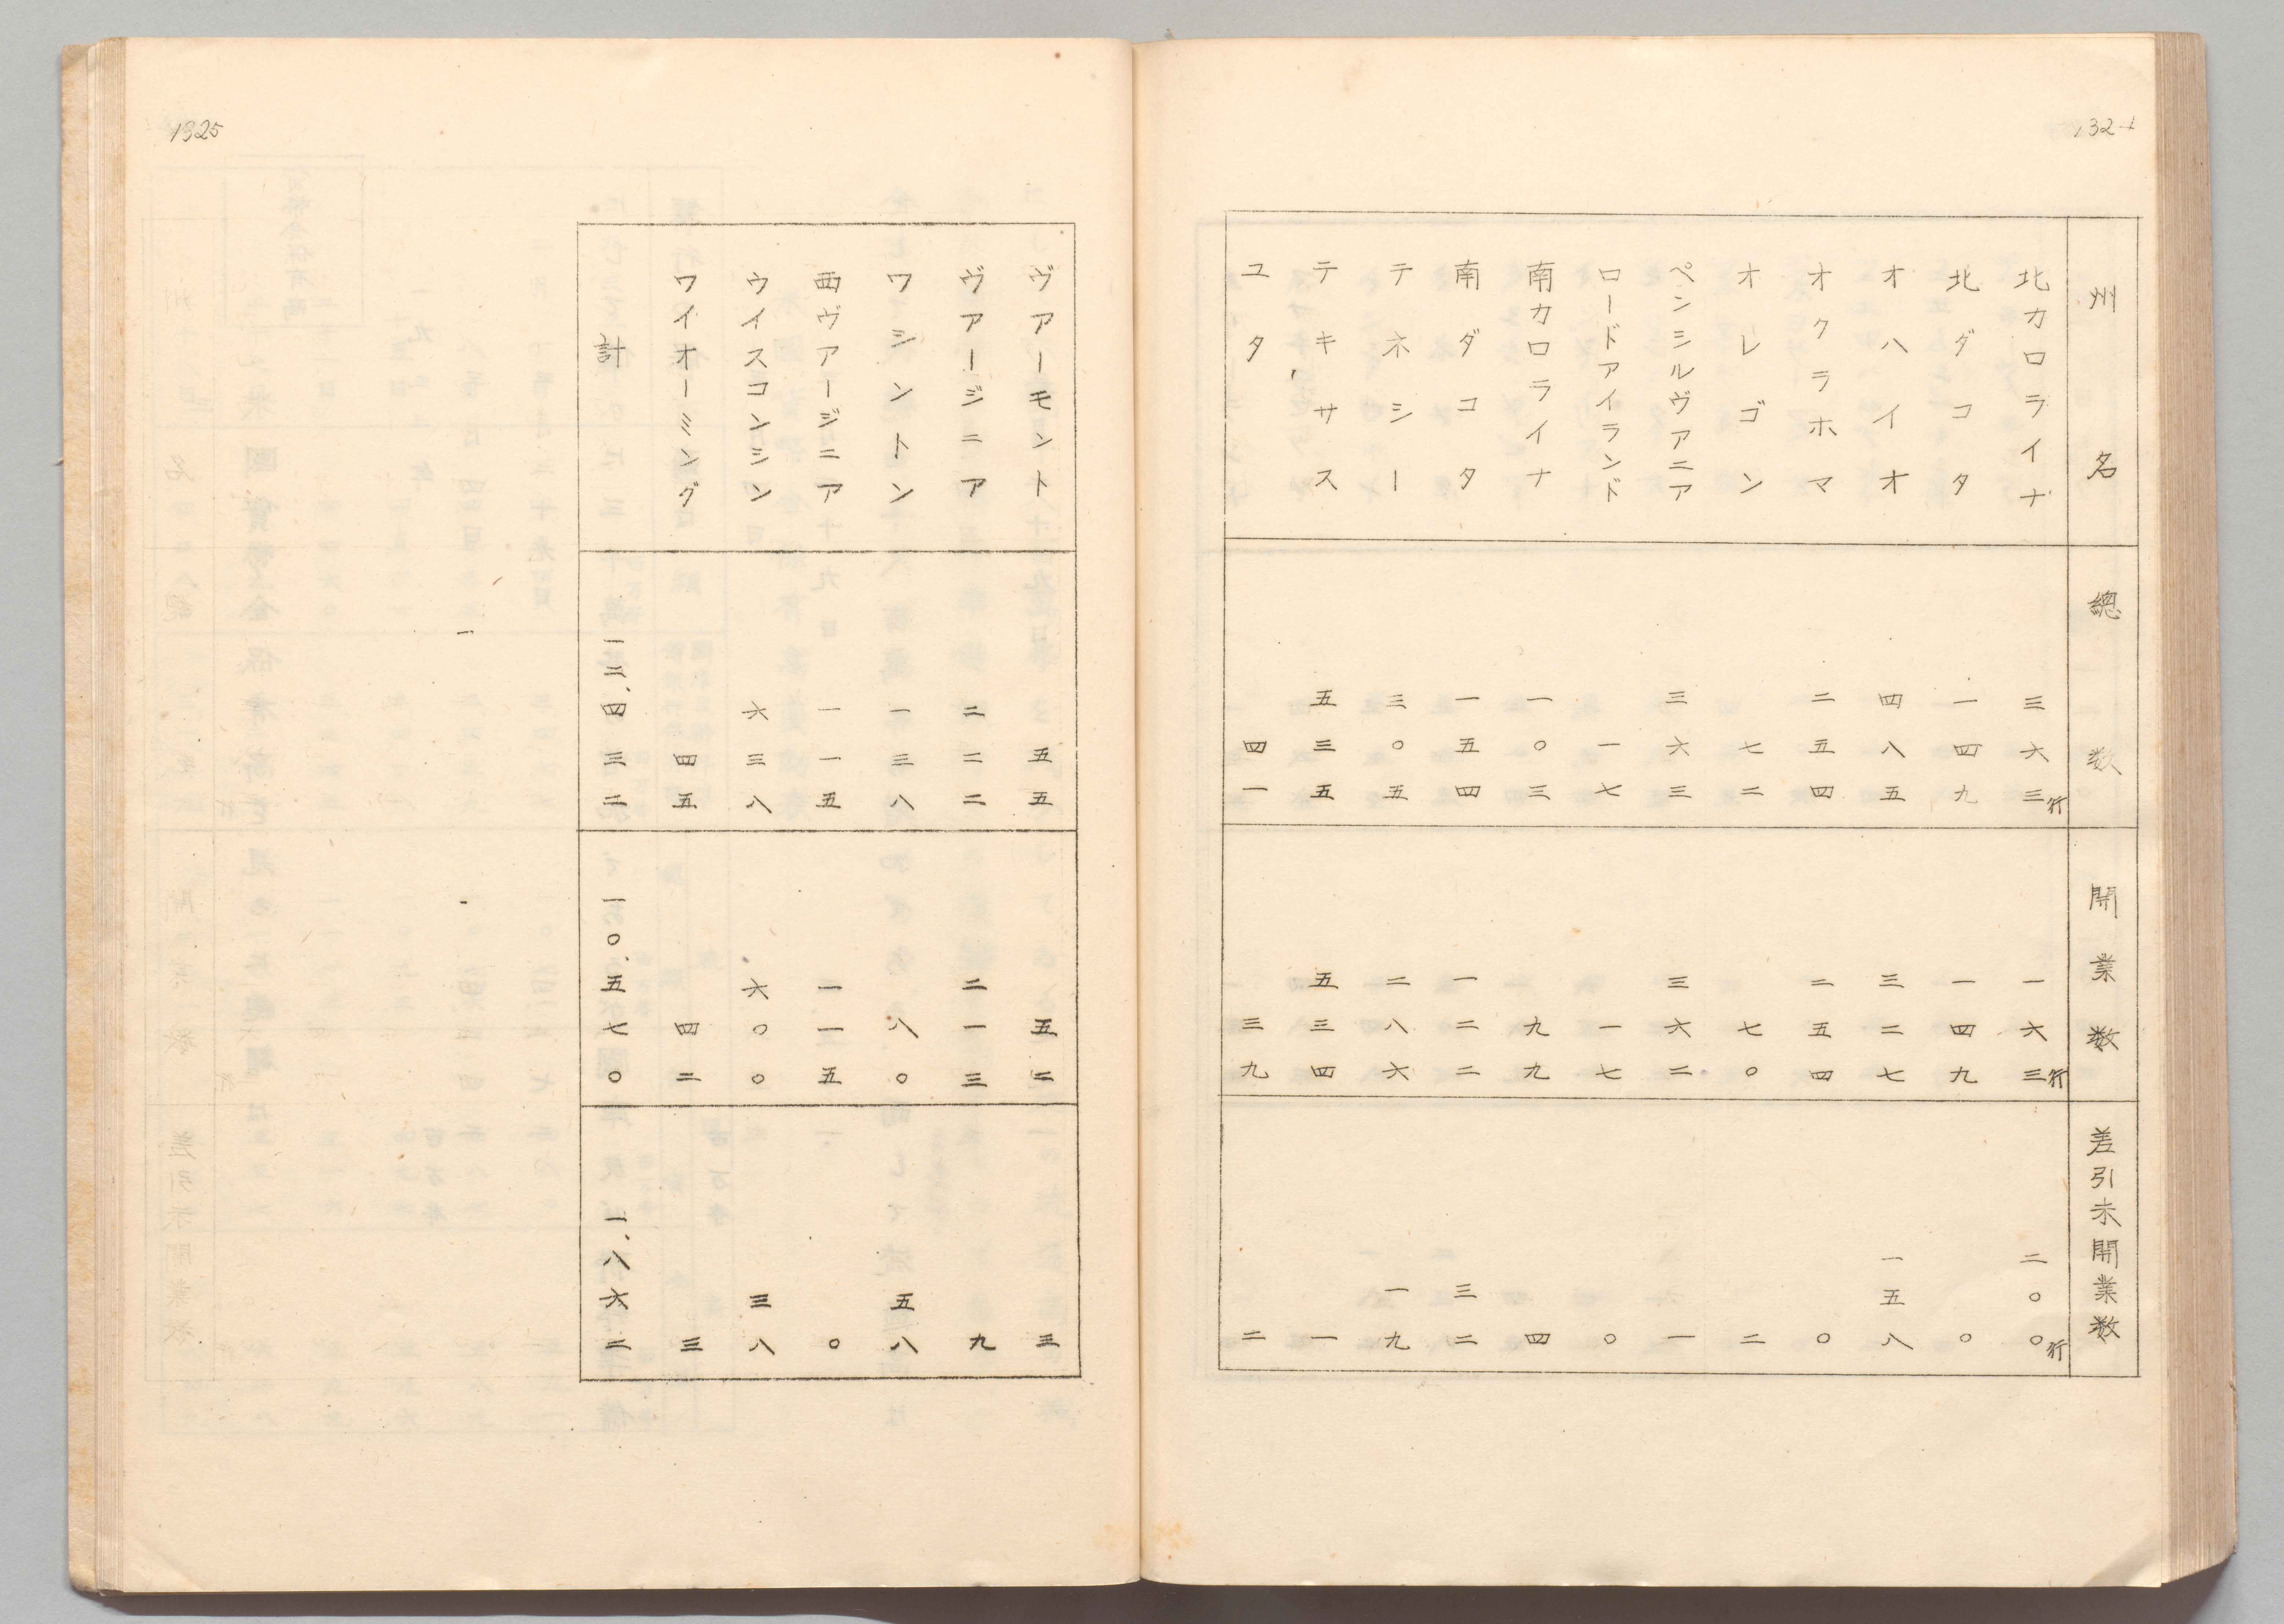 1324
州名 總数 開業数 差引未開業数
北カロライナ 三六三行 一六三行 二〇〇行
北ダコタ 一四九 一四九 〇
オハイオ 四八五 三二七 一五八
オクラホマ 二五四 二五四 〇
オレゴン 七二 七〇 二
ペンシルヴアニア 三六三 三六二 一
ロードアイランド 一七 一七 〇
南カロライナ 一〇三 九九 四
南ダコタ 一五四 一二二 三二
テネシー 三〇五 二八六 一九
テキサス 五三五 五三四 一
ユタ 四一 三九 二
1325
ヴアーモント 五五 五二 三
ヴアージニア 二二二 二一三 九
ワシントン 一三八 八〇 五八
西ヴアージニア 一一五 一一五 〇
ウイスコンシン 六三八 六〇〇 三八
ワイオーミング 四五 四二 三
計 一二、四三二 一〇、五七〇 一、八六二